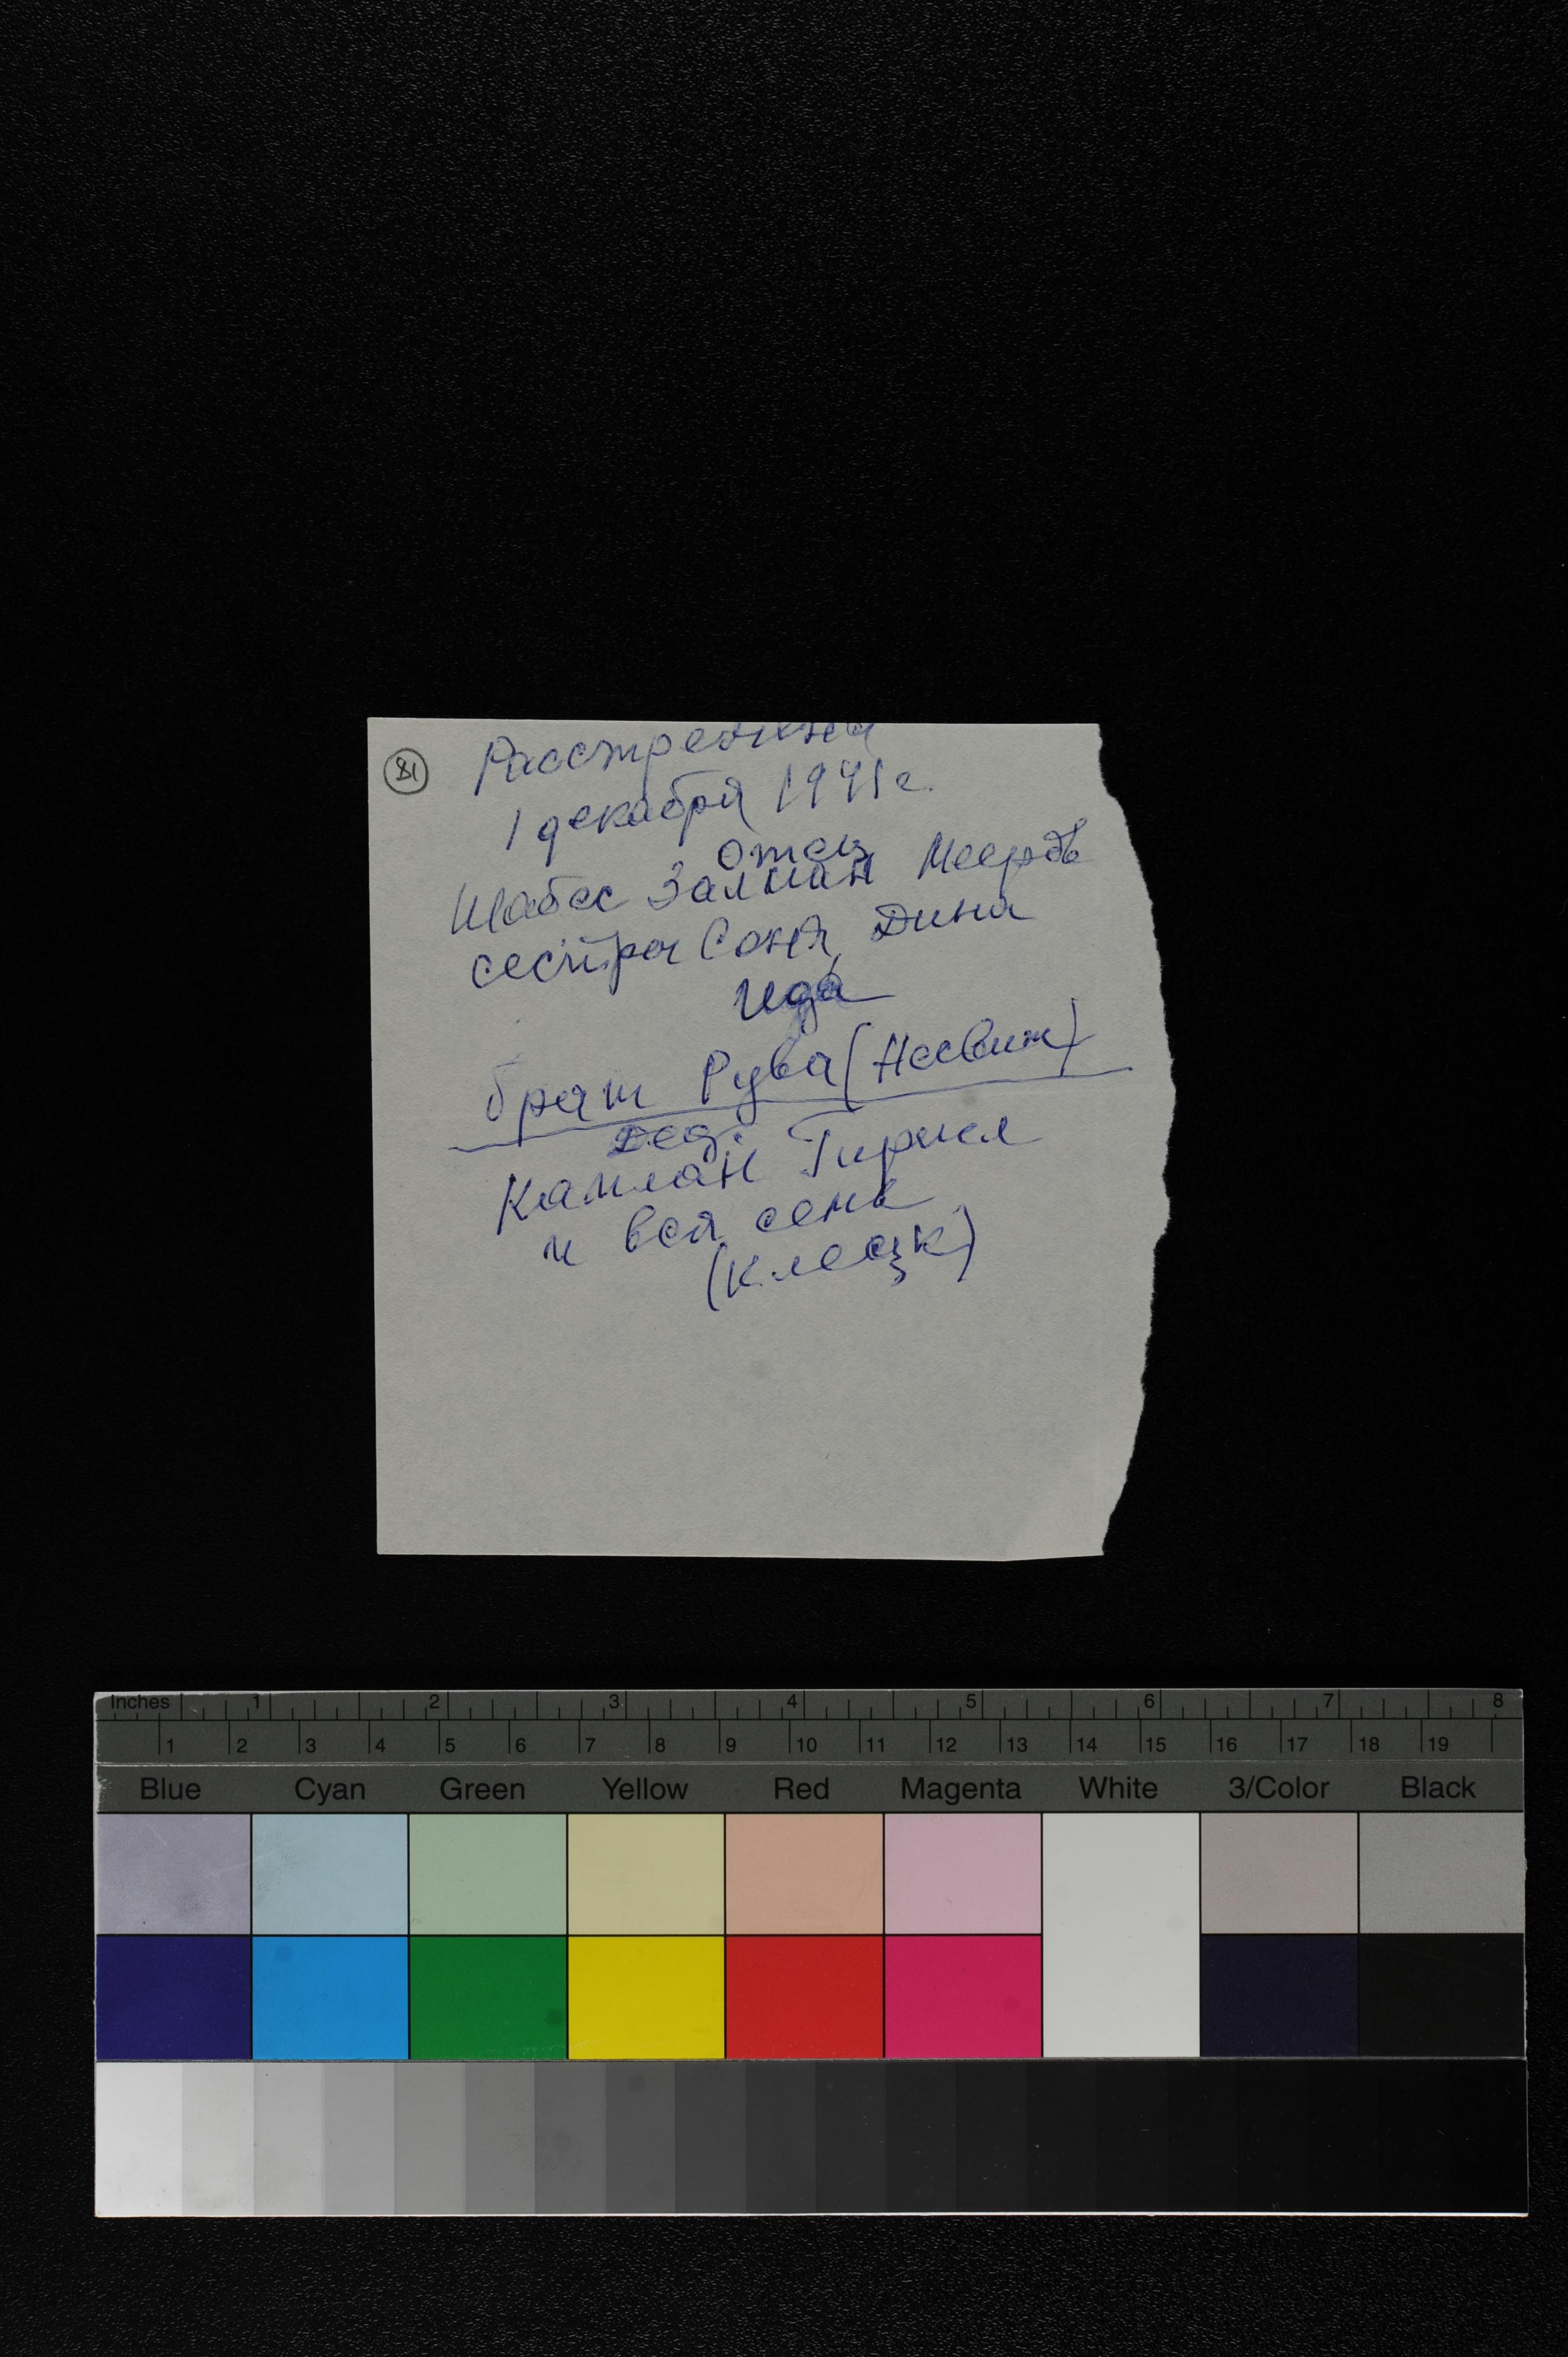 81
Расстреляны
1 декабря 1941 г.
Отец
Шабес Залман Меер
сестра Соня, Дина
Ида
брат Рува (Несвиж)
дед.
Каплан Гиршл
и вся семь
(Клецк)
Inches 1 2 3 4 5 6 7 8
1 2 3 4 5 6 7 8 9 10 11 12 13 14 15 16 17 18 19
Blue Cyan Green Yellow Red Magenta White 3/Color Black